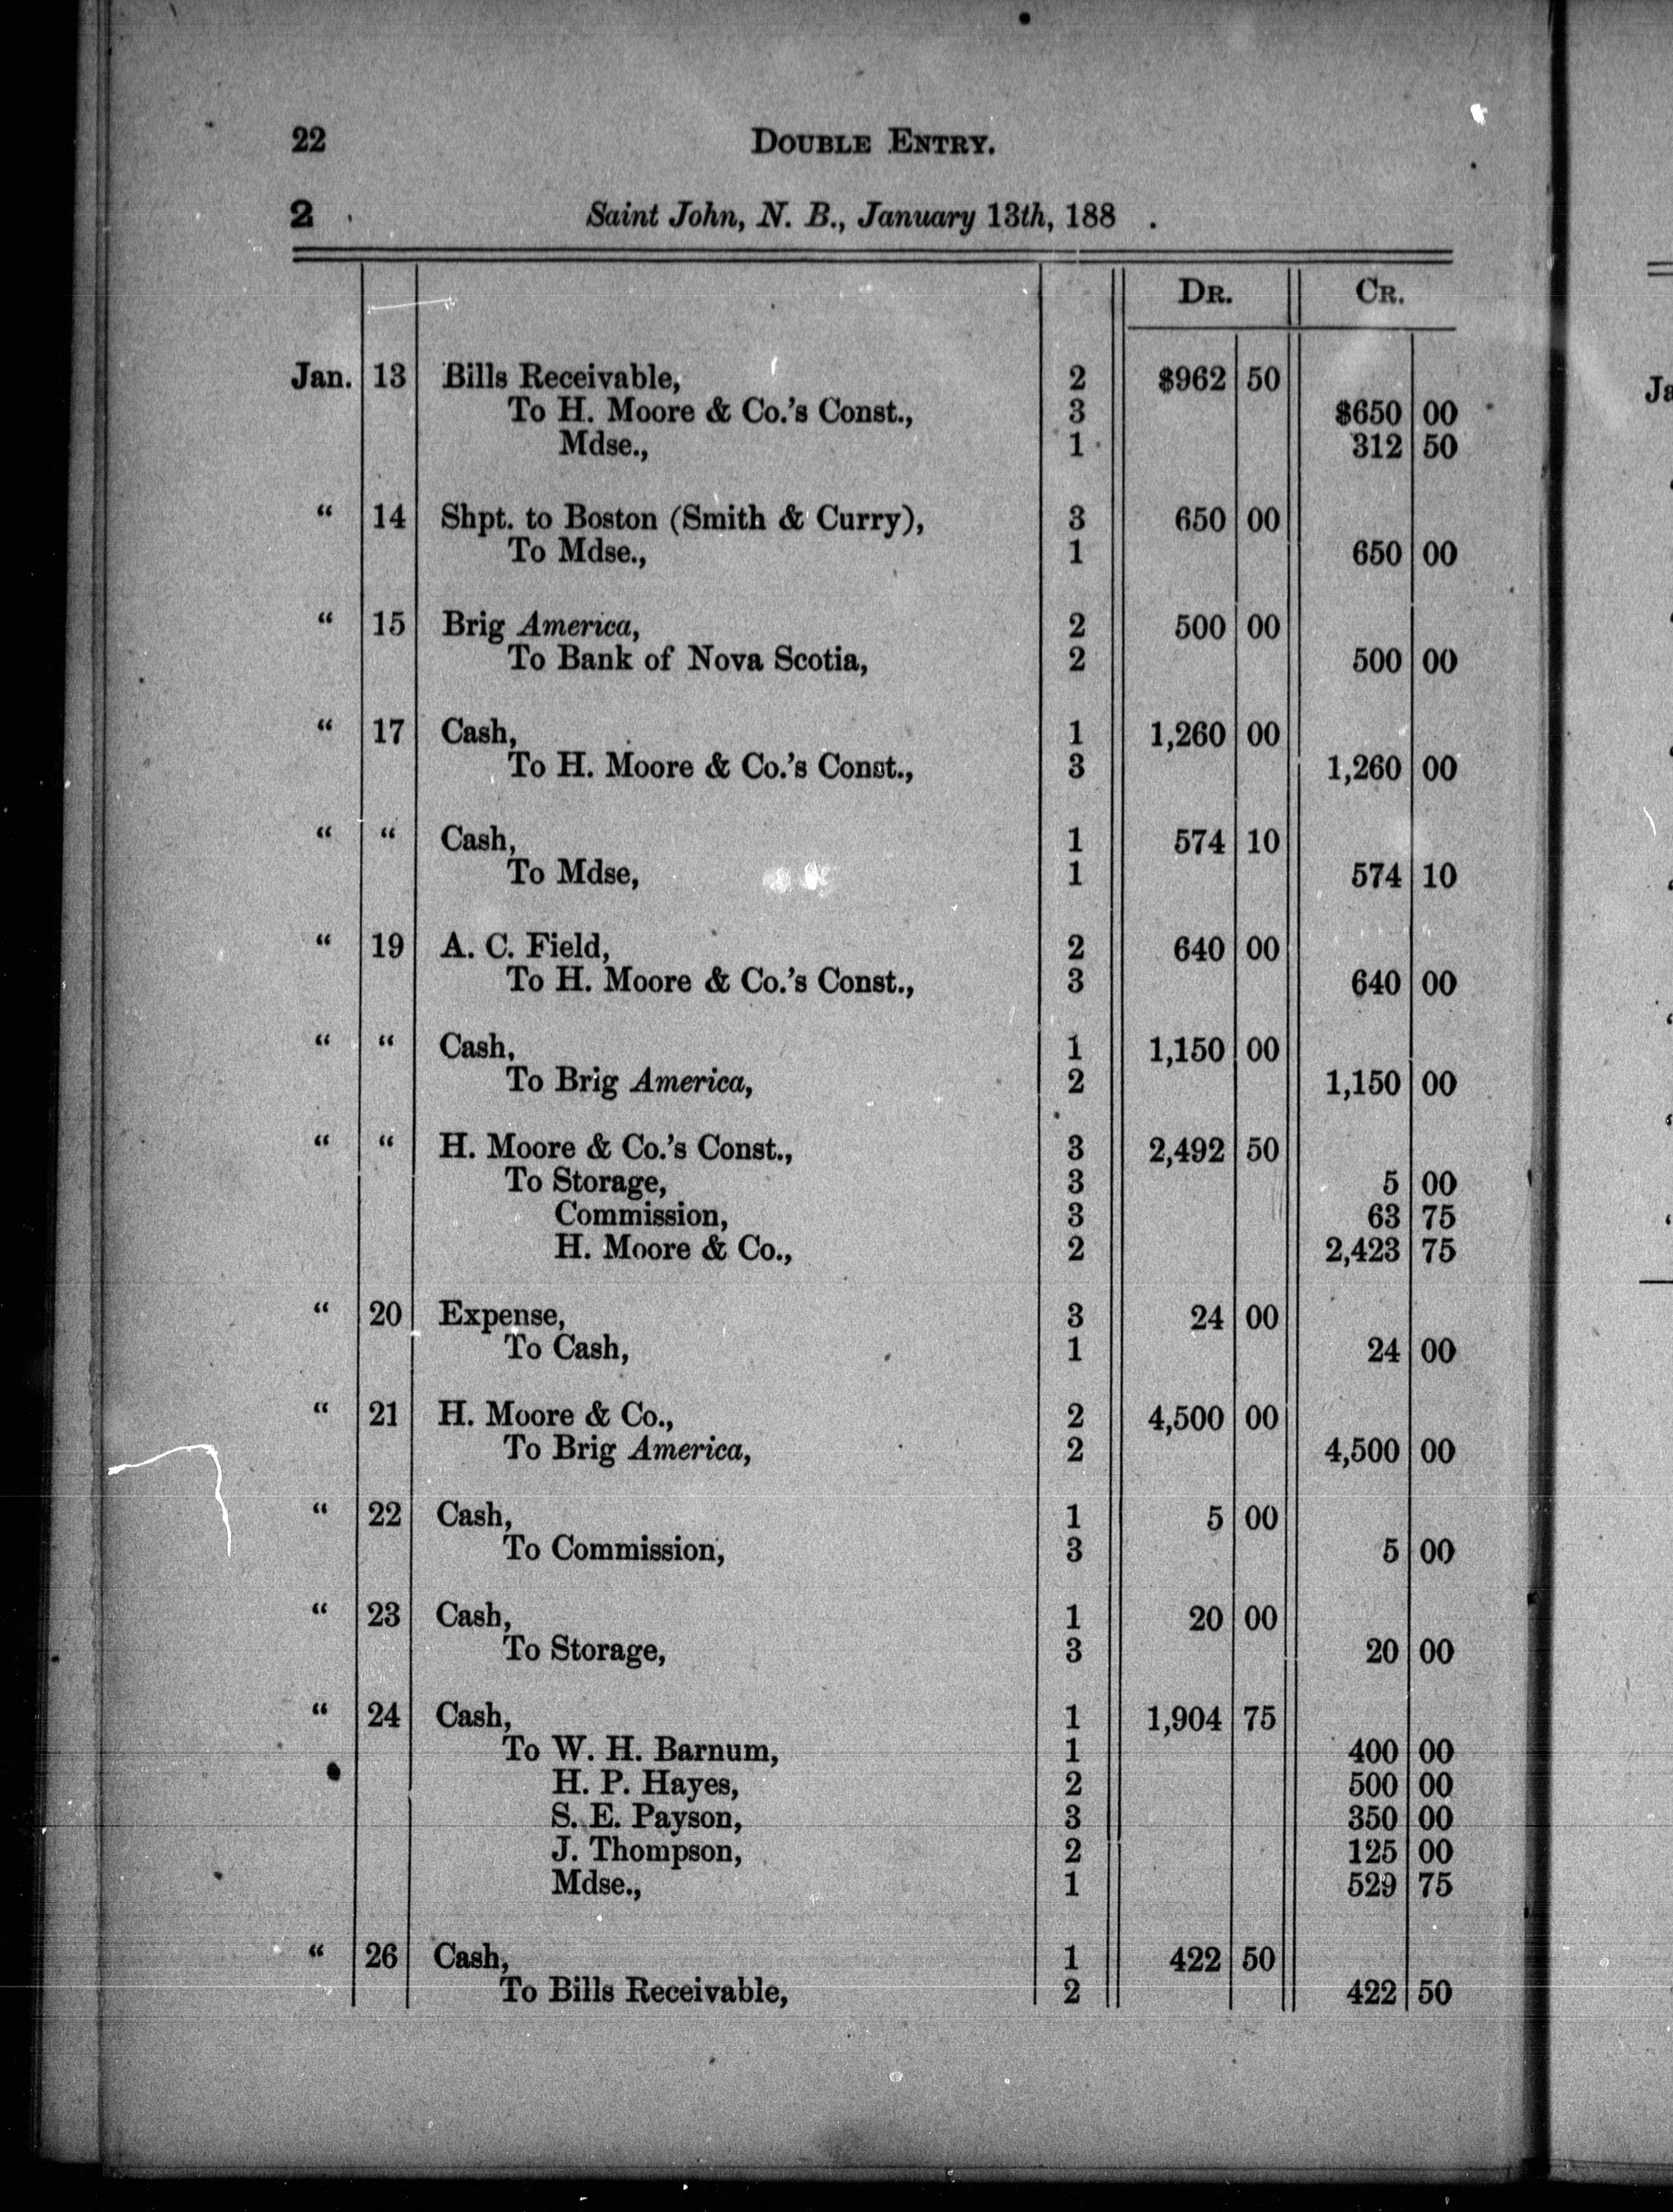 22 DOUBLE ENTRY.
2 Saint John, N. B., January 13th, 188 .
DR. CR.
Jan. 13 Bills Receivable, 2 $962 50
To H. Moore & Co.'s Const., 3 $650 00
Mdse., 1 312 50
“ 14 Shpt. to Boston (Smith & Curry), 3 650 00
To Mdse., 1 650 00
“ 15 Brig America, 2 500 00
To Bank of Nova Scotia, 2 500 00
“ 17 Cash, 1 1,260 00
To H. Moore & Co.'s Const., 3 1,260 00
“ “ Cash, 1 574 10
To Mdse, 1 574 10
“ 19 A. C. Field, 2 640 00
To H. Moore & Co.'s Const., 3 640 00
“ “ Cash, 1 1,150 00
To Brig America, 2 1,150 00
“ “ H. Moore & Co.'s Const., 3 2,492 50
To Storage, 3 5 00
Commission, 3 63 75
H. Moore & Co., 2 2,423 75
“ 20 Expense, 3 24 00
To Cash, 1 24 00
“ 21 H. Moore & Co., 2 4,500 00
To Brig America, 2 4,500 00
“ 22 Cash, 1 5 00
To Commission, 3 5 00
“ 23 Cash, 1 20 00
To Storage, 3 20 00
“ 24 Cash, 1 1,904 75
To W. H. Barnum, 1 400 00
H. P. Hayes, 2 500 00
S. E. Payson, 3 350 00
J. Thompson, 2 125 00
Mdse., 1 529 75
“ 26 Cash, 1 422 50
To Bills Receivable, 2 422 50